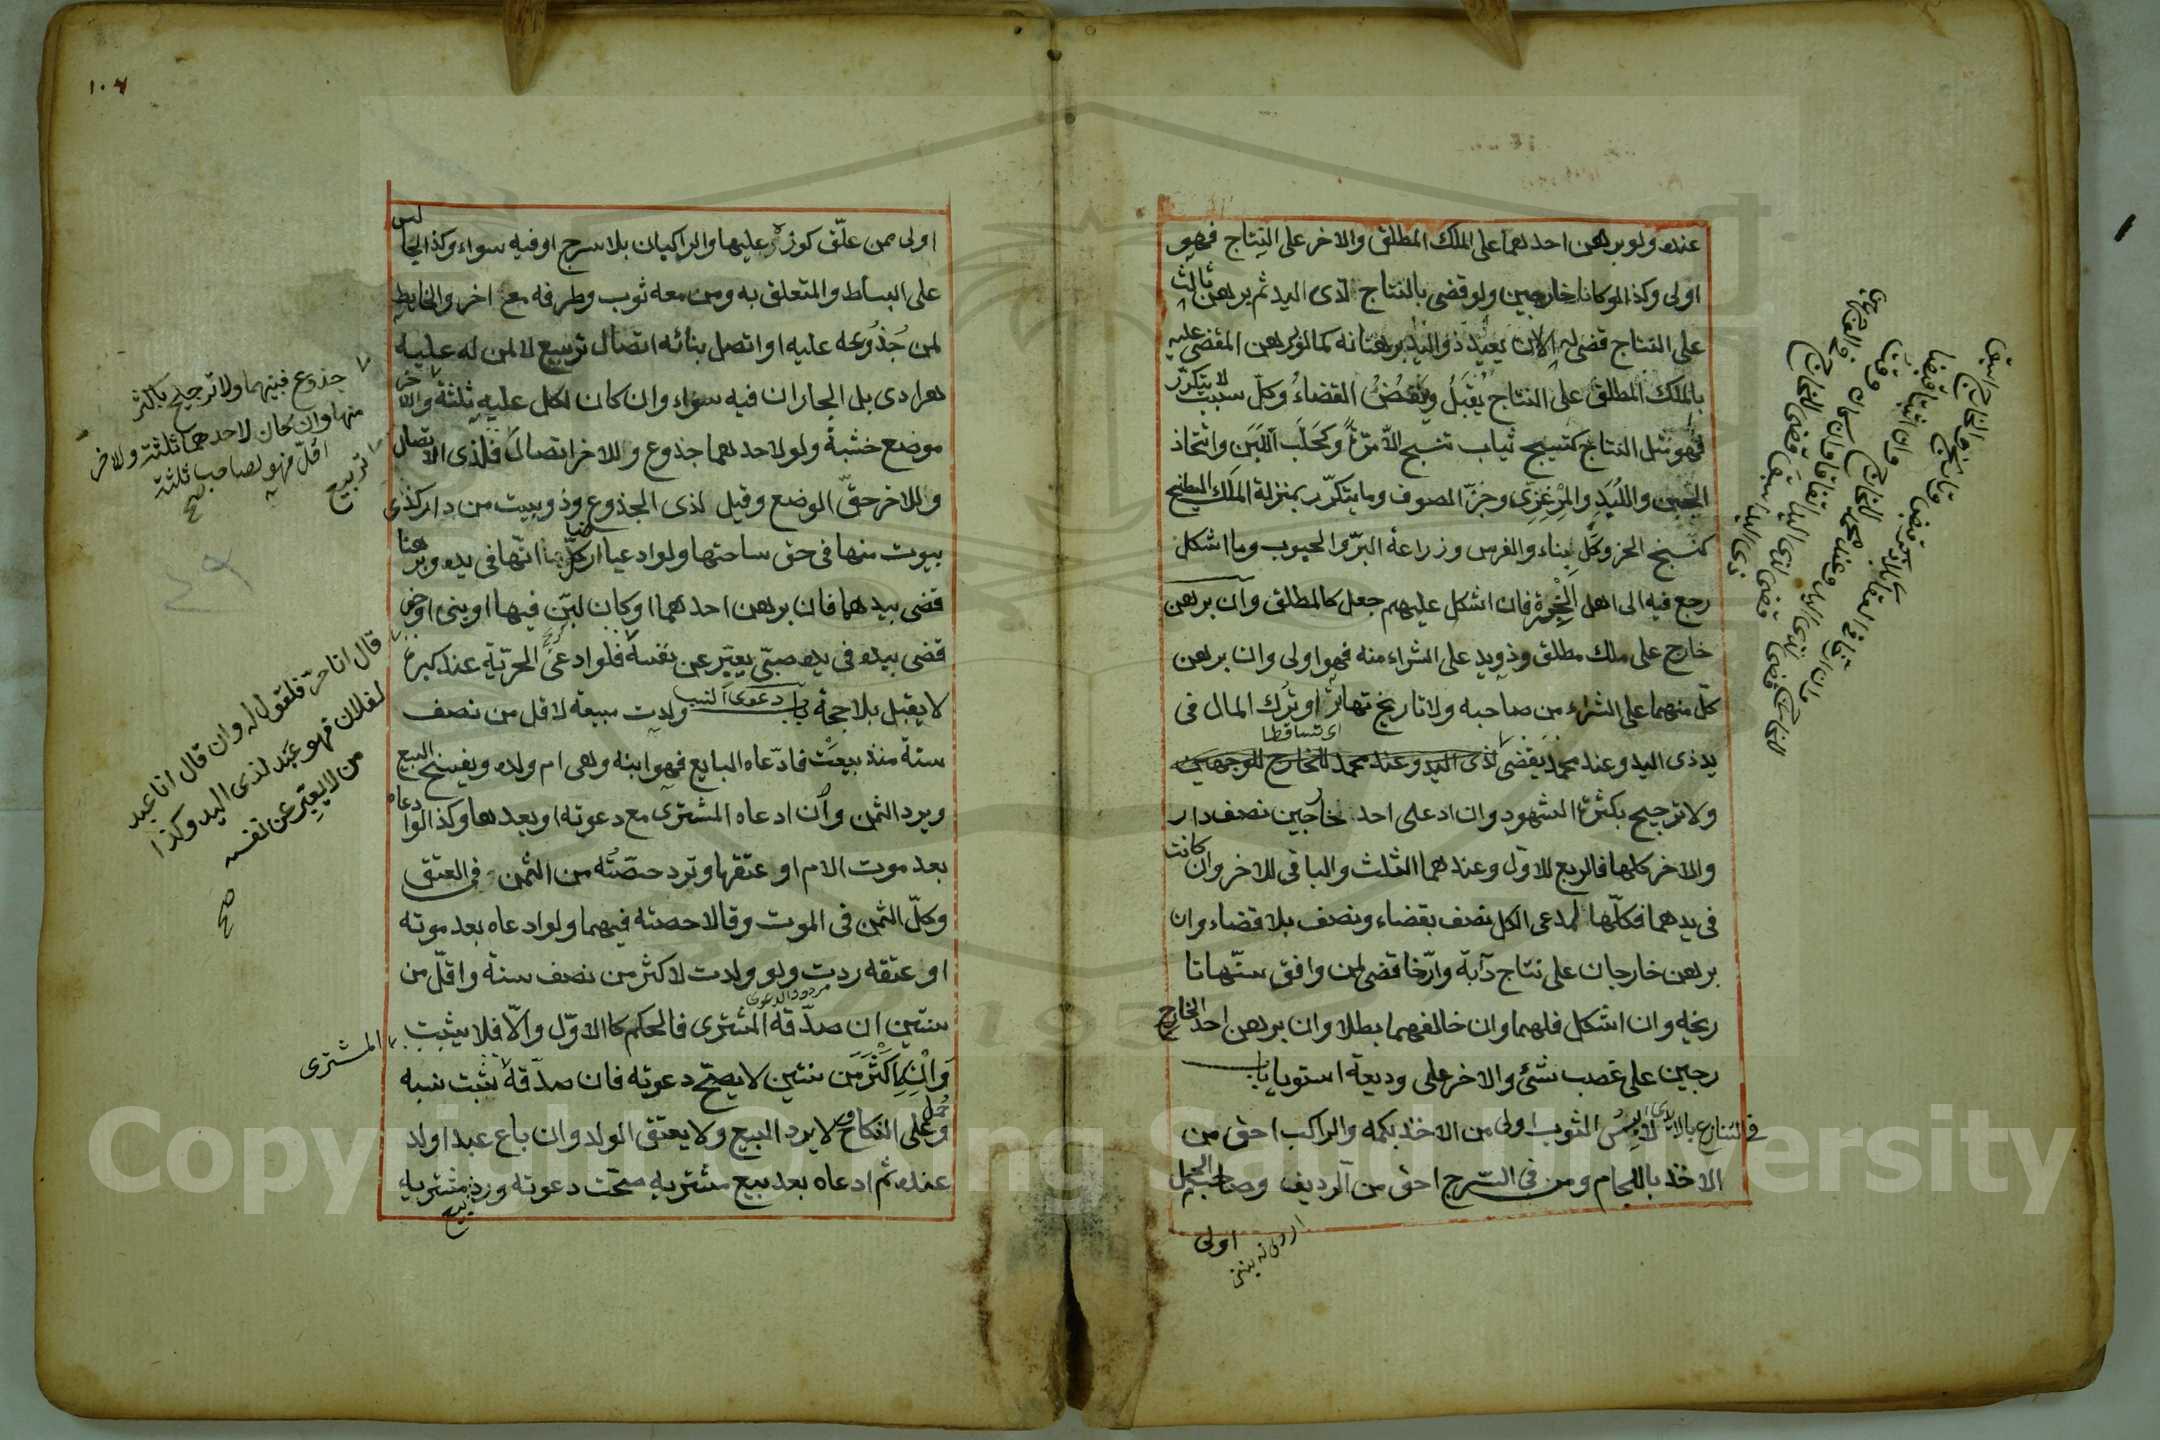 عنده ولو برهن احدهما على الملك المطلق والاخر على النتاج فهو
اولى وكذا لو كانا خارجين ولو قضى بالنتاج لذى اليد ثم برهن ثالث
على النتاج قضى له الا ان يعيد ذو اليد برهانه كما لو برهن المقضى عليه
بالملك المطلق على النتاج يُقبَل ويُنقَضُ القضاءُ وكلّ سبب لا يتكرّر
فهو مثل النتاج كنسيج ثياب تنسج الّا مرّةً وكحَلَب اللَبَن واتخاذ
الجبن واللِبَدِ والمِرْعِزِى وجَزّ الصوف وما يتكرّر بمنزلة الملك المطلق
كنسج الخز وكل بناء والغرس وزراعة البرّ والحبوب وما اشكل
رجع فيه الى اهل الخِبْرة فان اشكل عليهم جعل كالمطلق وان برهن
خارج على ملك مطلق وذو يد على الشراء منه فهو اولى وان برهن
كلّ منهما على الشراء من صاحبه ولا تاريخ تهاترا وتُرِك المال فى
اى تساقطا
يد ذى اليد وعند محمد يقضى لذى اليد وعند محمد للخارج للوجهين
ولا ترجيح بكثرة الشهود وان ادعى احد خارجين نصف دار
والاخر كلها فالربع للاول وعندهما الثلث والباقى للاخر وان كانت
فى يدهما فكلّها لمدعى الكل نصف بقضاء ونصف بلا قضاء وان
برهن خارجان على نتاج دآبة وارّخا قضى لمن وافق سنّها تا
ريخه وان اشكل فلهما وان خالفهما بطلا وان برهن احد الخارج
رجين على غصب شئ والاخر على وديعة استويا باب
فى التنازع بالايدى لابِسُ الثوب اولى من الاخذ بكمه والراكب احق من
الاخذ باللجام ومن فى السّرج احق من الرديف وصاحب الحمل
اولى
اولى ممن علّق كوزه عليها والراكبان بلا سرج او فيه سواء وكذا الجالس
على البساط والمتعلق به ومن معه ثوب وطرفه مع اخر والحايط
لمن جُذُوعه عليه او اتصل بنائه اتصال تربيع لا لمن له عليه
هرادى بل الجاران فيه سواء وان كان لكل عليه ثلثة والاخر
موضع خشبة ولو لاحدهما جذوع وللاخر اتصال فلذى الاتصال
وللاخر حقّ الوضع وقيل لذى الجذوع وذو بيت من دار كذى
بيوت منها فى حق ساحتها ولو ادعيا ارضا كلّ انّها فى يده وبرهنا
قضى بيدهما فان برهن احدهما او كان لبّن فيها او بنى او حفر
قضى بيده فى يده صبّى يعبّر عن نفسه فلو ادعى الحرّية عند كبره
لا يقبل بلا حجة باب دعوى النسب ولدت مبيعة لاقل من نصف
سنة منذ بيعَتْ فادّعاه البايع فهو ابنه وهى ام ولده ويفسخ البيع
ويرد الثمن وان ادعاه المشترى مع دعوته او بعدها وكذا لو ادعاه
بعد موت الام او عتقها وترد حصّتُه من الثمن فى العتق
وكلّ الثمن فى الموت وقالا حصته فيهما ولو ادعاه بعد موته
او عتقه ردت ولو ولدت لاكثر من نصف سنة واقلّ من
مردود الدعوى
سنتين ان صدّقه المشترى فالحكم كالاوّل والّا فلا يثبت
وان لِاكثَر من سنتين لا يصحّ دعوته فان صدّقه يثبت نسبه
وحُمل على النكاح ولا يرد البيع ولا يعتق الولد وان باع عبدا ولد
عنده ثم ادعاه بعد بيع مشتريه صحّت دعوته وردّ بيع مشتريه
جذوع فبينهما ولا ترجيح بالكثر
منها وان كان لاحدهما ثلثة وللاخر
اقلّ فهو لصاحب ثلثة
صح
تربيع
قال انا حرّ فالقول له وان قال انا عبد
لفلان فهو عبد لذى اليد وكذا
من لا يعبّر عن نفسه
صح
المشترى
Copyright © King Saud University
1957